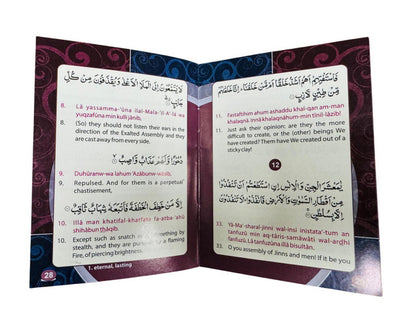 لَا يَسَّمَّعُونَ إِلَى الْمَلَإِ الْأَعْلَىٰ وَيُقْذَفُونَ مِنْ كُلِّ
جَانِبٍ
8. Lā yassamma-'ūna ilal-Mala-'il-A'-lā wa
yuqzafūna min kulli jānib.
8. (So) they should not listen their ears in the
direction of the Exalted Assembly and they
are cast away from every side.
دُحُورًا وَلَهُمْ عَذَابٌ وَاصِبٌ
9. Duhūranw-wa lahum 'Azābunw-wāsib.
9. Repulsed. And for them is a perpetual
chastisement,
إِلَّا مَنْ خَطِفَ الْخَطْفَةَ فَأَتْبَعَهُ شِهَابٌ ثَاقِبٌ
10. Illā man khatifal-khatfata fa-atba-'ahū
shihābun thāqib.
10. Except such as snatch away something by
stealth, and they are pursued by a flaming
Fire, of piercing brightness.
28
1. eternal, lasting
فَاسْتَفْتِهِمْ أَهُمْ أَشَدُّ خَلْقًا أَمْ مَنْ خَلَقْنَا إِنَّا خَلَقْنَاهُمْ
مِنْ طِينٍ لَازِبٍ
11. Fastafthim ahum ashaddu khal-qan am-man
khalaqnā innā khalaqnāhum-min tīnil-lāzib!
11. Just ask their opinion: are they the more
difficult to create, or the (other) beings We
have created? Them have We created out of a
sticky clay!
12
يَامَعْشَرَ الْجِنِّ وَالْإِنْسِ إِنِ اسْتَطَعْتُمْ أَنْ تَنْفُذُوا
مِنْ أَقْطَارِ السَّمَاوَاتِ وَالْأَرْضِ فَانْفُذُوا لَا تَنْفُذُونَ
إِلَّا بِسُلْطَانٍ
33. Yā-Ma'-sharal-jinni wal-insi inistata'-tum an
tanfuzū min aq-tāris-samāwāti wal-ardhi
fanfuzū. Lā tanfuzūna illā bisultān.
33. O you assembly of Jinns and men! If it be you